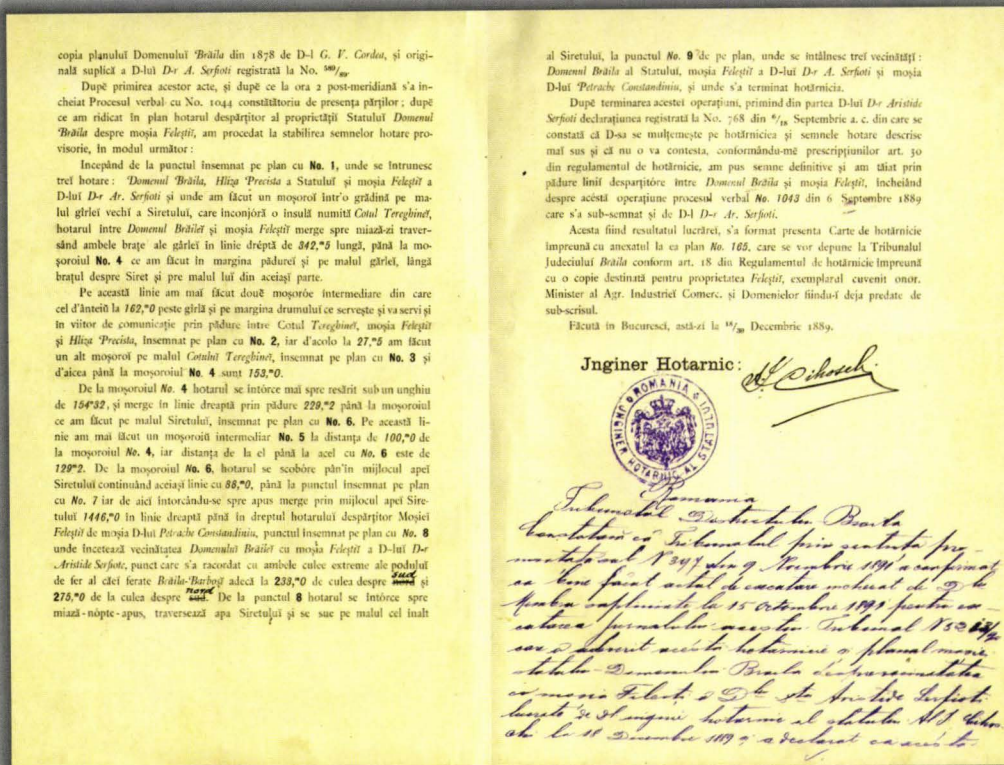 copia planuluĭ Domenuluĭ Brăila din 1878 de D-l G. V. Cordea, și origi-
nală suplică a D-luĭ D-r A. Serfioti registrată la No. 589/89.
După primirea acestor acte, și după ce la ora 2 post-meridiană s'a în-
cheiat Procesul verbal cu No. 1044 constătătoriu de presența părților; după
ce am ridicat în plan hotarul despărțitor al proprietățiĭ Statuluĭ Domenul
Brăila despre moșia Feleștiĭ, am procedat la stabilirea semnelor hotare pro-
visorie, în modul următor:
Incepând de la punctul însemnat pe plan cu No. 1, unde se întrunesc
treĭ hotare: Domenul Brăila, Hliza Precista a Statuluĭ și moșia Feleștiĭ a
D-luĭ D-r Ar. Serfioti și unde am făcut un moșoroĭ într'o grădină pe ma-
lul gîrleĭ vechĭ a Siretuluĭ, care înconjóră o insulă numită Cotul Tereghineĭ,
hotarul între Domenul Brăileĭ și moșia Feleștiĭ merge spre miază-zi traver-
sând ambele brațe ale gârleĭ în linie dréptă de 342,m5 lungă, până la mo-
șoroiul No. 4 ce am făcut în margina pădureĭ și pe malul gârleĭ, lângă
brațul despre Siret și pre malul luĭ din aceiașĭ parte.
Pe această linie am maĭ făcut douĕ moșoróe întermediare din care
cel d'ânteiŭ la 162,m0 peste gîrlă și pe margina drumuluĭ ce servește și va servi și
în viitor de comunicație prin pădure între Cotul Tereghineĭ, moșia Feleștiĭ
și Hliza Precista, însemnat pe plan cu No. 2, iar d'acolo la 27,m5 am făcut
un alt moșoroĭ pe malul Cotuluĭ Tereghineĭ, însemnat pe plan cu No. 3 și
d'aicea până la moșoroiul No. 4 sunt 153,m0.
De la moșoroiul No. 4 hotarul se întórce maĭ spre resărit sub un unghiu
de 154°32, și merge în linie dreaptă prin pădure 229,m2 până la moșoroiul
ce am făcut pe malul Siretuluĭ, însemnat pe plan cu No. 6. Pe această li-
nie am maĭ făcut un moșoroiŭ intermediar No. 5 la distanța de 100,m0 de
la moșoroiul No. 4, iar distanța de la el până la acel cu No. 6 este de
129m2. De la moșoroiul No. 6, hotarul se scobóre pân'în mijlocul apeĭ
Siretuluĭ continuând aceiașĭ linie cu 88,m0, până la punctul însemnat pe plan
cu No. 7 iar de aicĭ întorcându-se spre apus merge prin mijlocul apeĭ Sire-
tuluĭ 1446,m0 în linie dreaptă până în dreptul hotaruluĭ despărțitor Moșieĭ
Feleștiĭ de moșia D-luĭ Petrache Constandiniu, punctul însemnat pe plan cu No. 8
unde încetează vecinătatea Domenuluĭ Brăileĭ cu moșia Feleștiĭ a D-luĭ D-r
Aristide Serfioti, punct care s'a racordat cu ambele culee extreme ale poduluĭ
de fer al căeĭ ferate Brăila-Barboșĭ adecă la 233,m0 de culea despre sud și
275,m0 de la culea despre nord. De la punctul 8 hotarul se întórce spre
miază-nópte-apus, traversează apa Siretuluĭ și se sue pe malul cel înalt
al Siretuluĭ, la punctul No. 9 de pe plan, unde se întâlnesc treĭ vecinătățĭ:
Domenul Brăila al Statuluĭ, moșia Feleștiĭ a D-luĭ D-r A. Serfioti și moșia
D-luĭ Petrache Constandiniu, și unde s'a terminat hotărnicia.
După terminarea acesteĭ operațiunĭ, primind din partea D-luĭ D-r Aristide
Serfioti declarațiunea registrată la No. 768 din 6/18 Septembrie a. c. din care se
constată că D-sa se mulțemește pe hotărniciea și semnele hotare descrise
maĭ sus și că nu o va contesta, conformându-mĕ prescripțiunilor art. 30
din regulamentul de hotărnicie, am pus semne definitive și am tăiat prin
pădure liniĭ despărțitóre între Domenul Brăila și moșia Feleștiĭ, încheiând
despre acéstă operațiune procesul verbal No. 1043 din 6 Septembre 1889
care s'a sub-semnat și de D-l D-r Ar. Serfioti.
Acesta fiind resultatul lucrăreĭ, s'a format presenta Carte de hotărnicie
împreună cu anexatul la ea plan No. 165, care se vor depune la Tribunalul
Judeciuluĭ Brăila conform art. 18 din Regulamentul de hotărnicie împreună
cu o copie destinată pentru proprietatea Feleștiĭ, exemplarul cuvenit onor.
Minister al Agr. Industrieĭ Comerc. și Domenielor fiindu-ĭ deja predate de
sub-scrisul.
Făcută în Bucurescĭ, astă-zĭ la 18/30 Decembrie 1889.
Jnginer Hotarnic:
ROMANIA
JNGINER HOTARNIC AL STATULUI
Romania
Tribunalul Districtului Braila
Constatăm că Tribunalul prin sentința pro-
No 397 din 9 Noembrie 1891 a confirmat
ca bine făcut actul de încheiat de D
Membru la 15 Octombrie 1891 pentru
jurnalului acestui Tribunal No
hotarnicie și planul
Domenului Braila
cu moșia Filești a Aristide Serfioti
de inginer hotarnic al statului Al
la 18 Decembrie 1889 a declarat